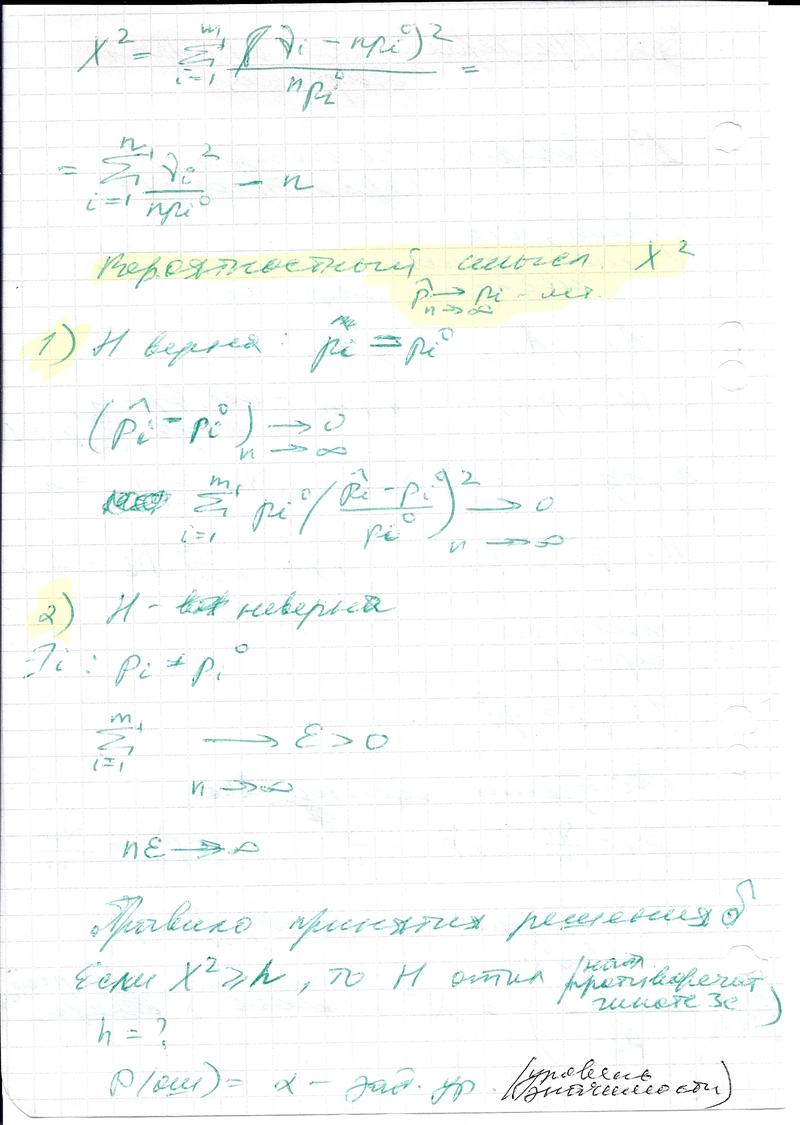 X² = Σ_{i=1}^{m} (νi − npi⁰)² / npi⁰ =
= Σ_{i=1}^{n} νi² / npi⁰ − n
Вероятностный смысл X²
p̂ → pi
n → ∞
1) H верна: pi = pi⁰
(p̂i − pi⁰) → 0
n → ∞
Σ_{i=1}^{m} pi⁰ ((p̂i − pi⁰) / pi⁰)² → 0
n → ∞
2) H − неверна
∃i: pi ≠ pi⁰
Σ_{i=1}^{m} → ε > 0
n → ∞
nε → ∞
Правило принятия решения
Если X² ≥ h, то H откл (набл противоречат гипотезе)
h = ?
P(ош) = α − зад. ур. (уровень значимости)